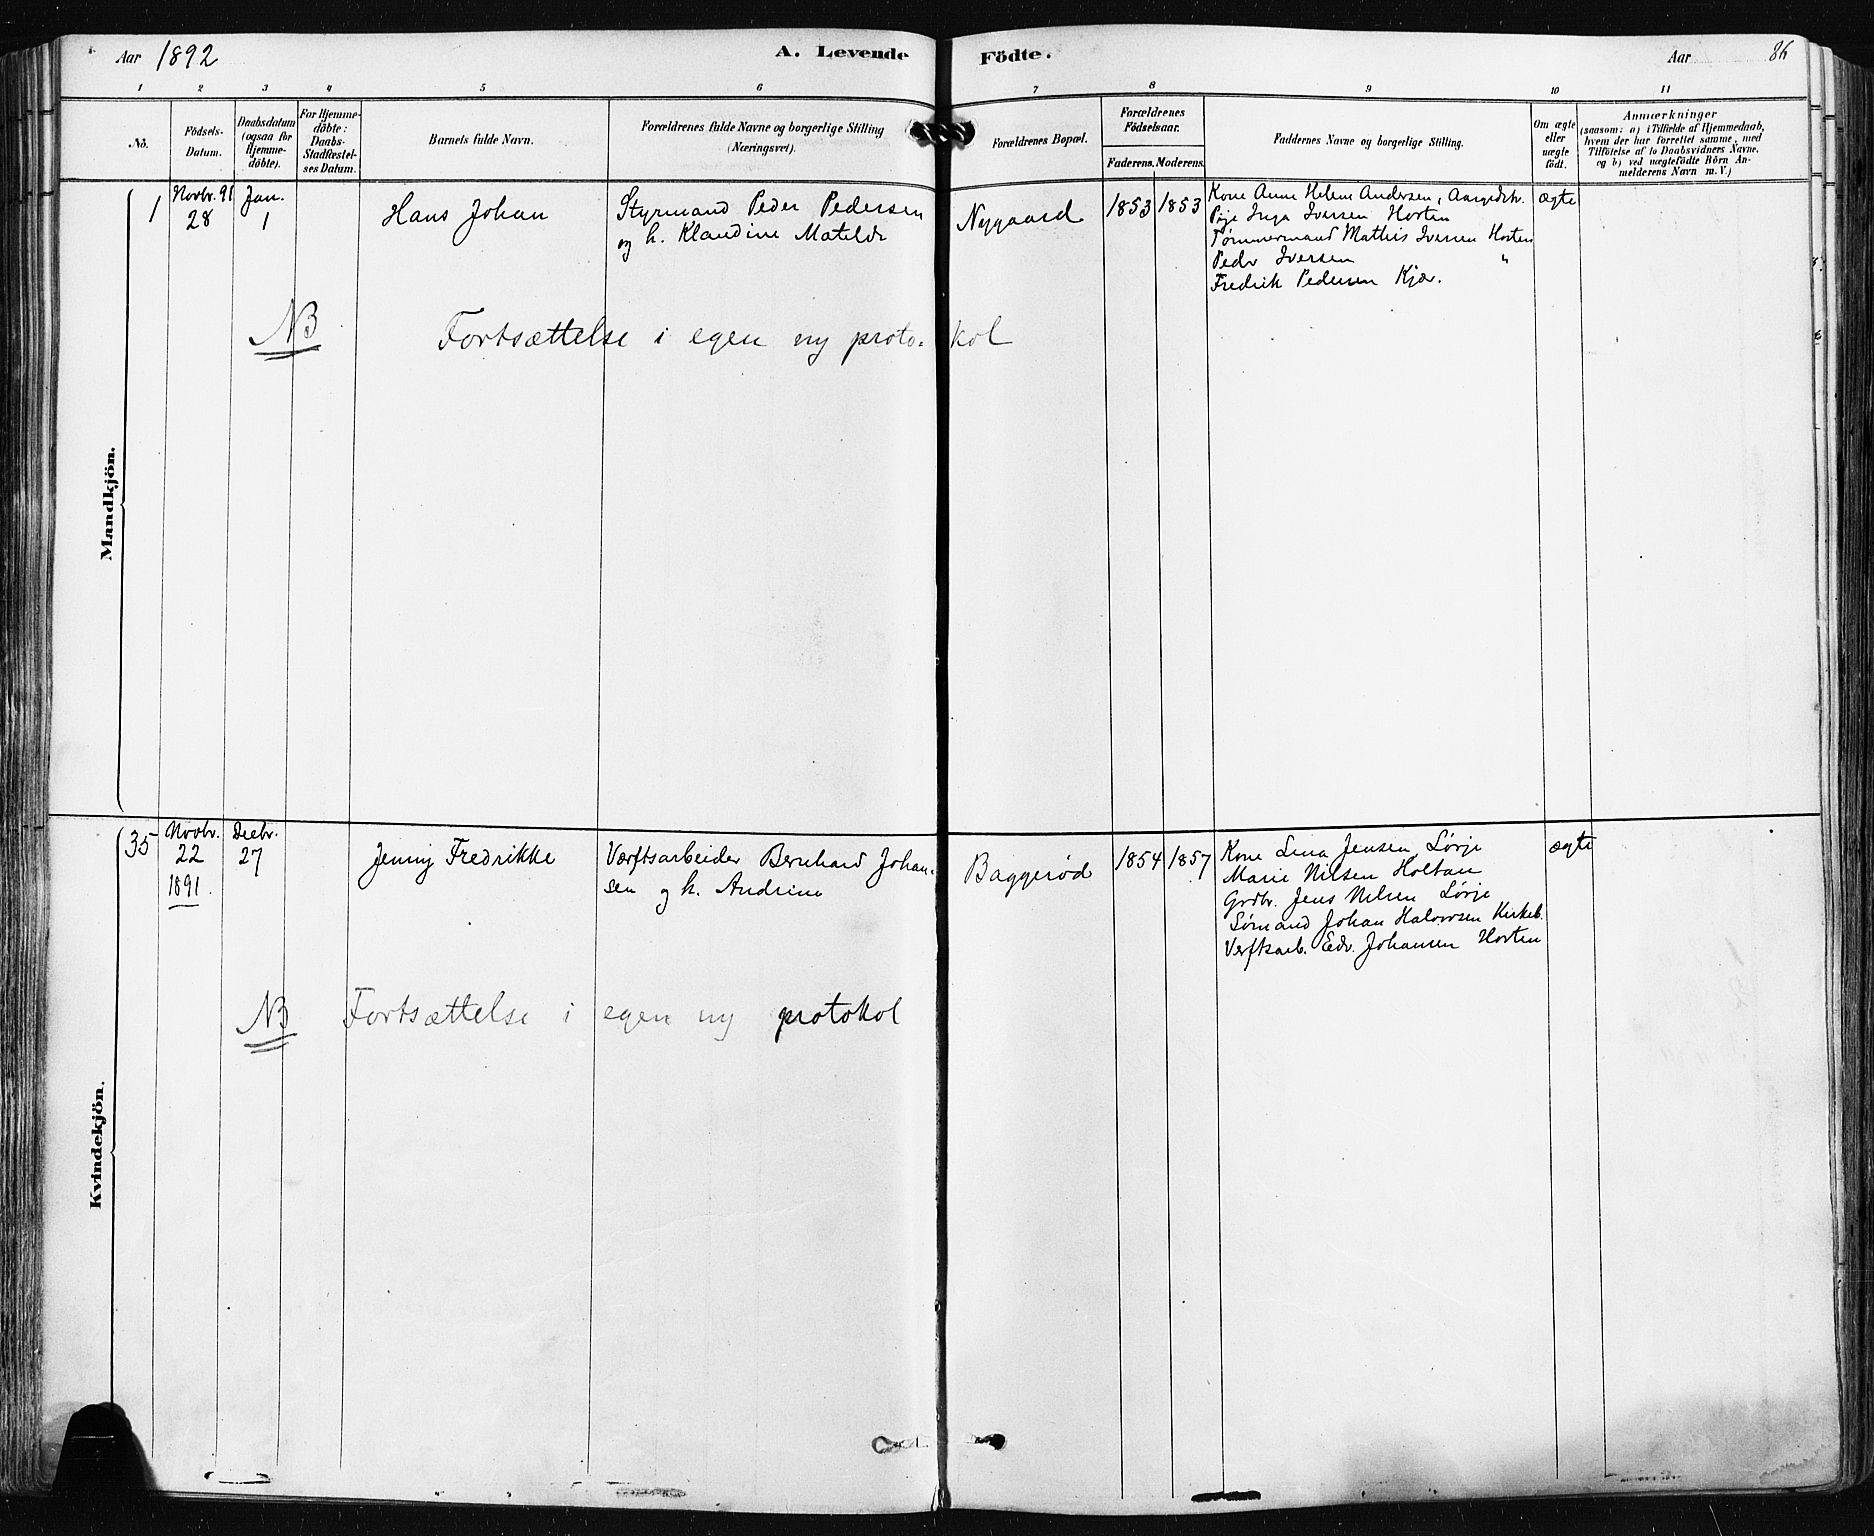 Aar 1892
A. Levende Födte.
Aar 86
1 2 3 4 5 6 7 8 9 10 11
No.
Födsels-
Datum.
Daabsdatum
(ogsaa for
Hjemme-
döbte).
For Hjemme-
döbte:
Daabs-
Stadfæstel-
ses Datum.
Barnets fulde Navn.
Forældrenes fulde Navne og borgerlige Stilling
(Næringsvei).
Forældrenes Bopæl.
Forældrenes
Födselsaar.
Faderens. Moderens.
Faddernes Navne og borgerlige Stilling.
Om ægte
eller
uægte
födt.
Anmærkninger
(saasom: a) i Tilfælde af Hjemmedaab,
hvem der har forrettet samme, med
Tilföielse af to Daabsvidners Navne.
og b) ved uægtefödte Börn An-
melderens Navn m. V.)
Mandkjön.
1
Novbr. 91
28
Jan.
1
Hans Johan
Styrmand Peder Pedersen
og h. Klaudine Matilde
Nygaard
1853 1853
Kone Anne Helene Andersen, Aargedstr.
Pige Inga Iversen Horten
Tømmermand Mathis Iversen Horten
Peder Iversen "
Fredrik Pedersen Kjær.
ægte
NB Fortsættelse i egen ny protokol
Kvindekjön.
35
Novbr.
22
1891.
Decbr.
27
Jenny Fredrikke
Værftsarbeider Bernhard Johan-
sen og h. Andrine
Baggerød
1854 1857
Kone Lina Jensen Lørje
Marie Nilsen Holtan
Grdbr. Jens Nilsen Lørje
Sømand Johan Halvorsen Kirkeb.
Verftsarb. Edv. Johansen Horten
ægte
NB Fortsættelse i egen ny protokol